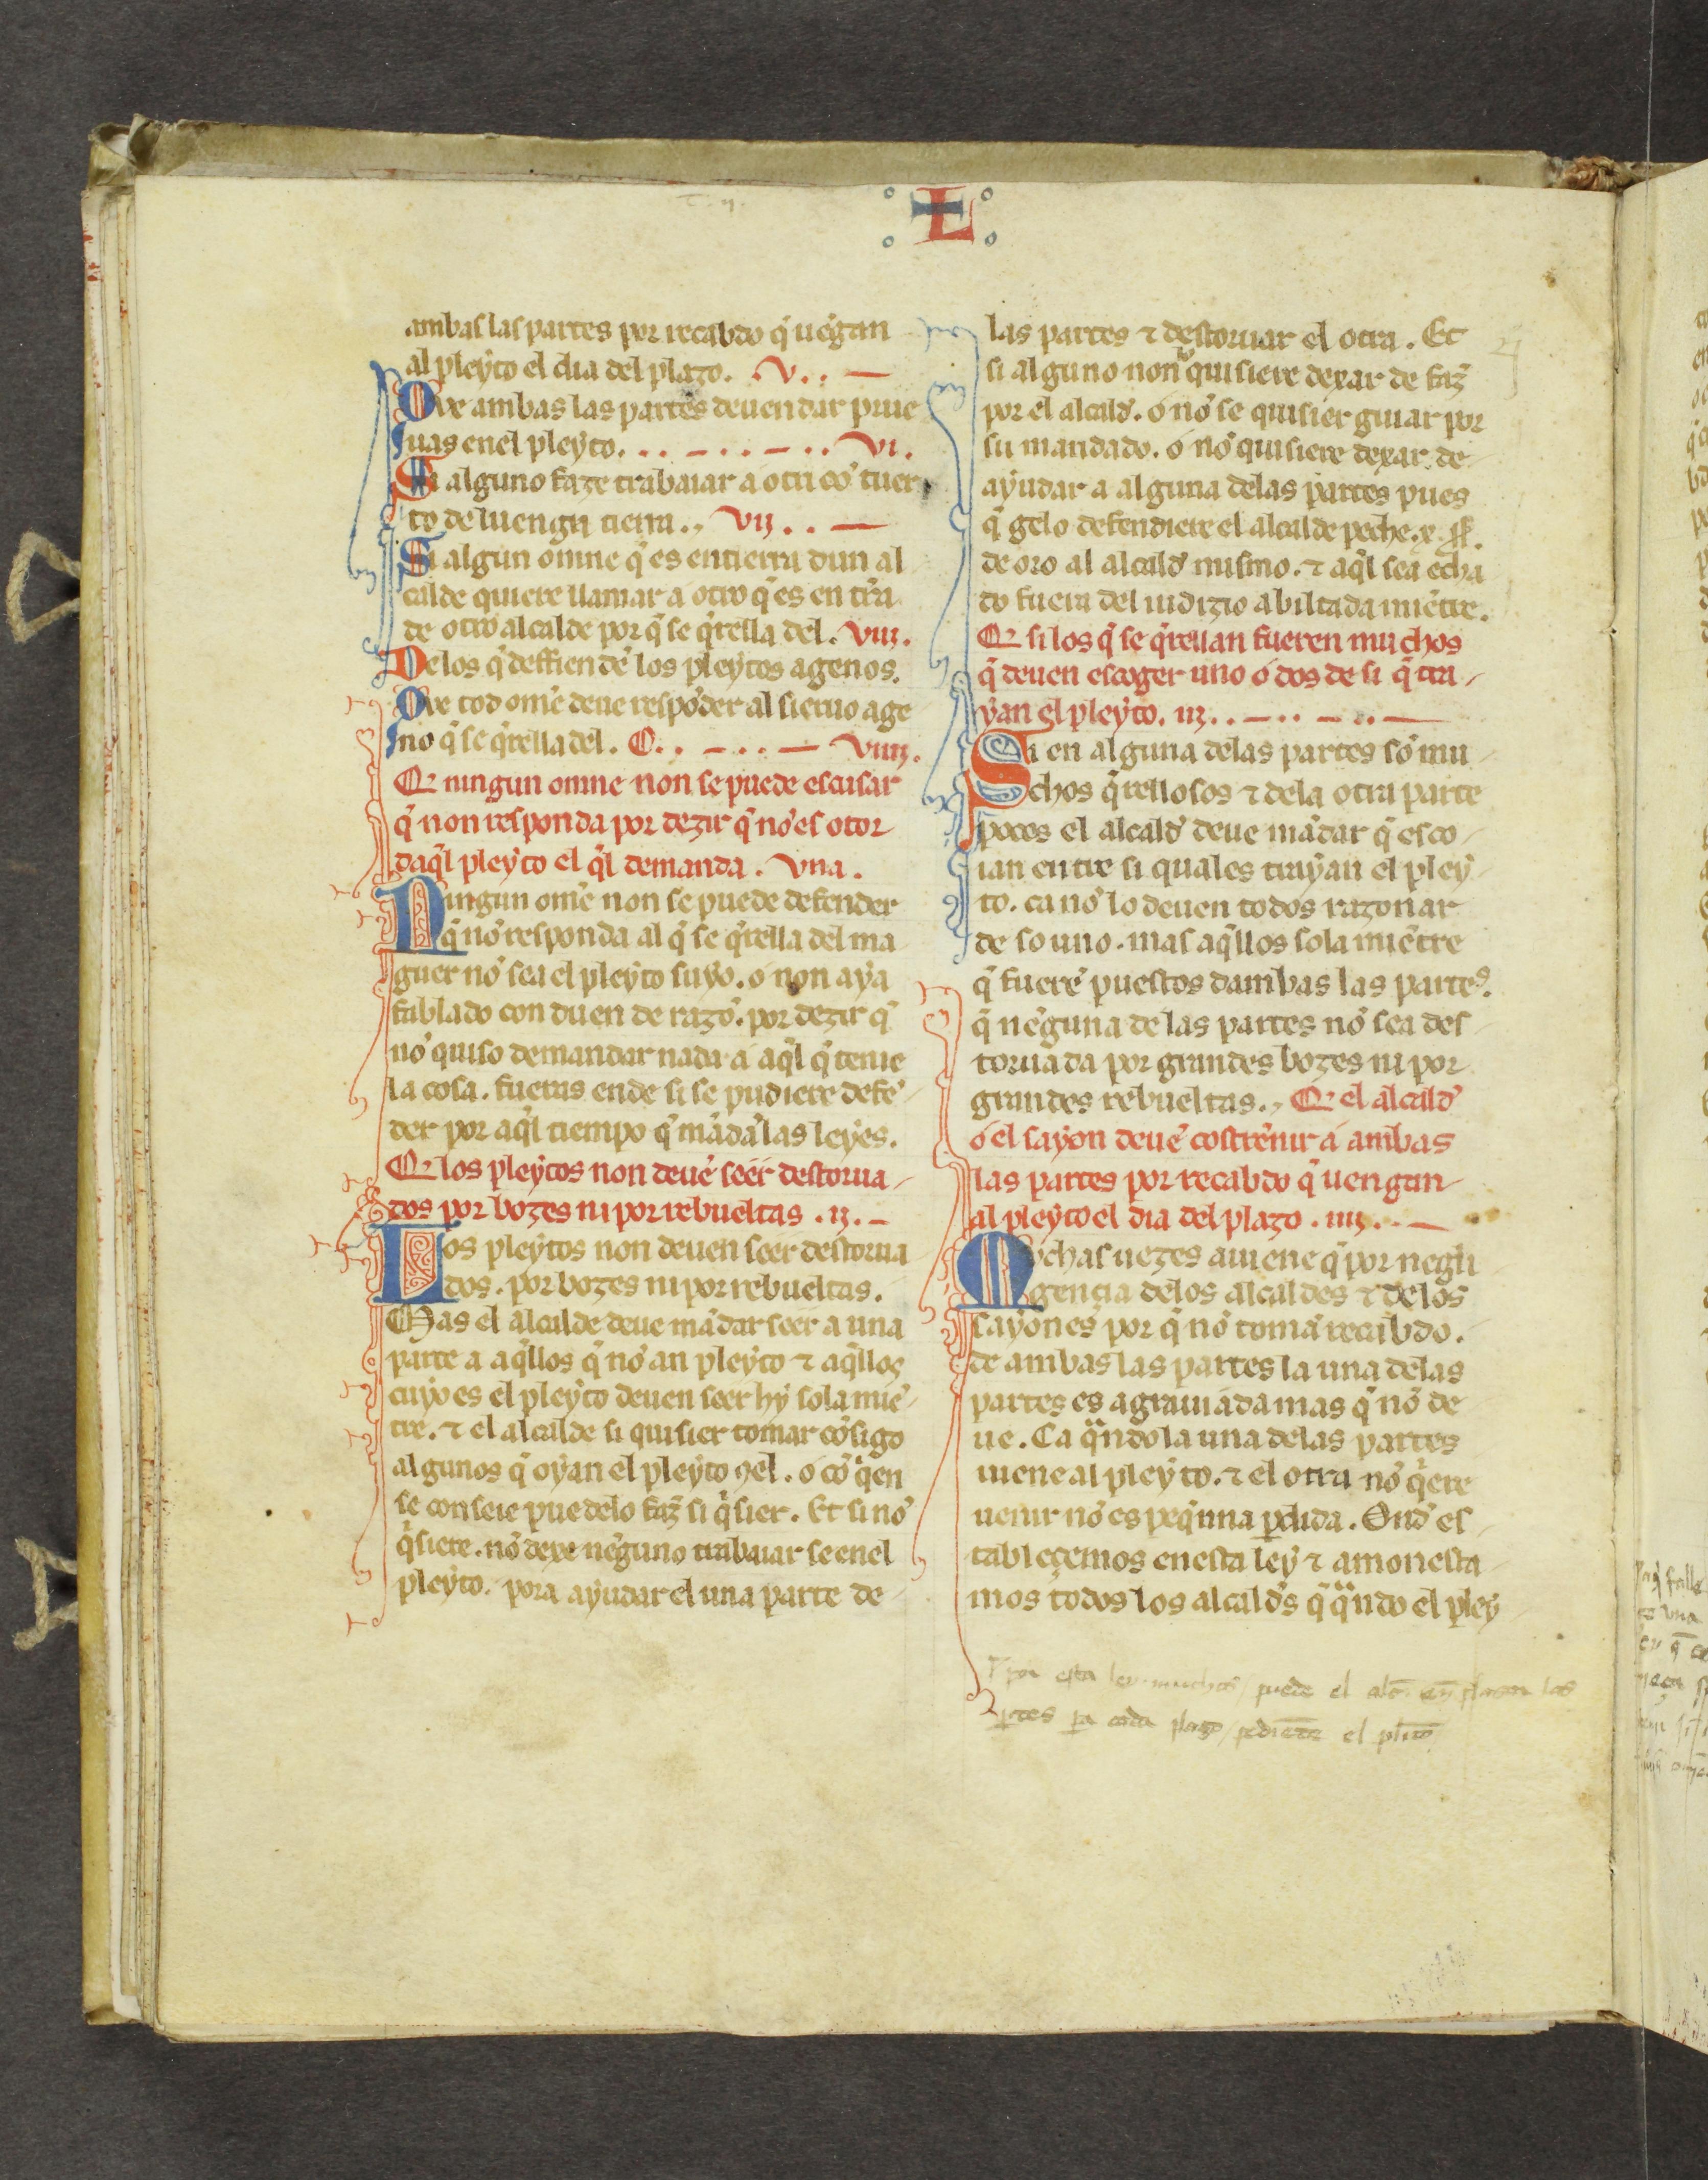 L
ambas las partes por recabdo q̃ uẽgan
al pleyto el dia del plazo. v. . —
Que ambas las partes deuen dar prue
uas en el pleyto. . . — . . — . . vi.
Si alguno faze trabaiar a otri cõ tuer
to de luenga tierra. , vij. . . —
Si algun omne q̃ es en tierra dun al
calde quiere llamar a otro q̃ es en tr̃ra
de otro alcalde por q̃ se q̃rella del. viij.
Delos q̃ deffienden los pleytos agenos.
Que tod omẽ deue respõder al sieruo age
no q̃ se q̃rella del. C. . — . . — viiij.
Q̃ ningun omne non se puede escusar
q̃ non responda por dezir q̃ nõ es otor
daq̃l pleyto el q̃l demanda. vna.
Ningun omẽ non se puede defender
q̃ nõ responda al q̃ se q̃rella del ma
guer nõ sea el pleyto suyo. o non aya
fablado con duen de razõ. por dezir q̃
nõ quiso demandar nada a aq̃l q̃ tenie
la cosa. fueras ende si se pudiere defẽ
der por aq̃l tiempo q̃ mãdã las leyes.
Q̃ los pleytos non deuẽ seer destorua
dos por bozes ni por rebueltas. ij. —
Los pleytos non deuen seer destorua
dos. por bozes ni por rebueltas.
Mas el alcalde deue mãdar seer a una
parte a aq̃llos q̃ nõ an pleyto ⁊ aq̃llos
cuyo es el pleyto deuen seer hy sola miẽ
tre. ⁊ el alcalde si quisier tomar cõsigo
algunos q̃ oyan el pleyto ꝯel. o cõ q̃en
se conseie puedelo faz̃ si q̃sier. Et si nõ
q̃siere. nõ dexe nẽguno trabaiar se en el
pleyto. pora ayudar el una parte de
las partes ⁊ destoruar el otra. Et
si alguno non quisiere dexar de faz̃
por el alcald̃. o nõ se quisier guiar por
su mandado. o nõ quisiere dexar. de
ayudar a alguna delas partes pues
q̃ gelo defendiere el alcalde peche. x.
de oro al alcald̃ mismo. ⁊ aq̃l sea echa
do fuera del iudizio abiltada miẽtre.
Q̃ si los q̃ se q̃rellan fueren muchos
q̃ deuen escoger uno o dos de si q̃ tra
yan el pleyto. iij. . — . . — . . —
Si en alguna delas partes sõ mu
chos q̃rellosos ⁊ dela otra parte
pocos el alcald̃ deue mãdar q̃ esco
ian entre si quales trayan el pley
to. ca nõ lo deuen todos razonar
de so uno. mas aq̃llos sola miẽtre
q̃ fuerẽ puestos dambas las partes.
q̃ nẽguna de las partes nõ sea des
toruada por grandes bozes ni por
grandes rebueltas. , Q̃ el alcald̃
o el sayon deuẽ costrẽnir a ambas
las partes por recabdo q̃ uengan
al pleyto el dia del plazo. iiij. . —
Muchas uezes auiene q̃ por negli
gencia delos alcaldes ⁊ delos
sayones por q̃ nõ tomã recabdo.
de ambas las partes la una delas
partes es agrauiada mas q̃ nõ de
ue. Ca q̃ndo la una delas partes
uiene al pleyto. ⁊ el otra nõ q̃ere
uenir nõ es peq̃nna perdida. Ond̃ es
tablecemos en esta ley ⁊ amonesta
mos todos los alcald̃s q̃ q̃ndo el pley
por esta ley muchos puede el alc̃ enplazar las
partes pa cada plazo pediẽte el pl̃ito